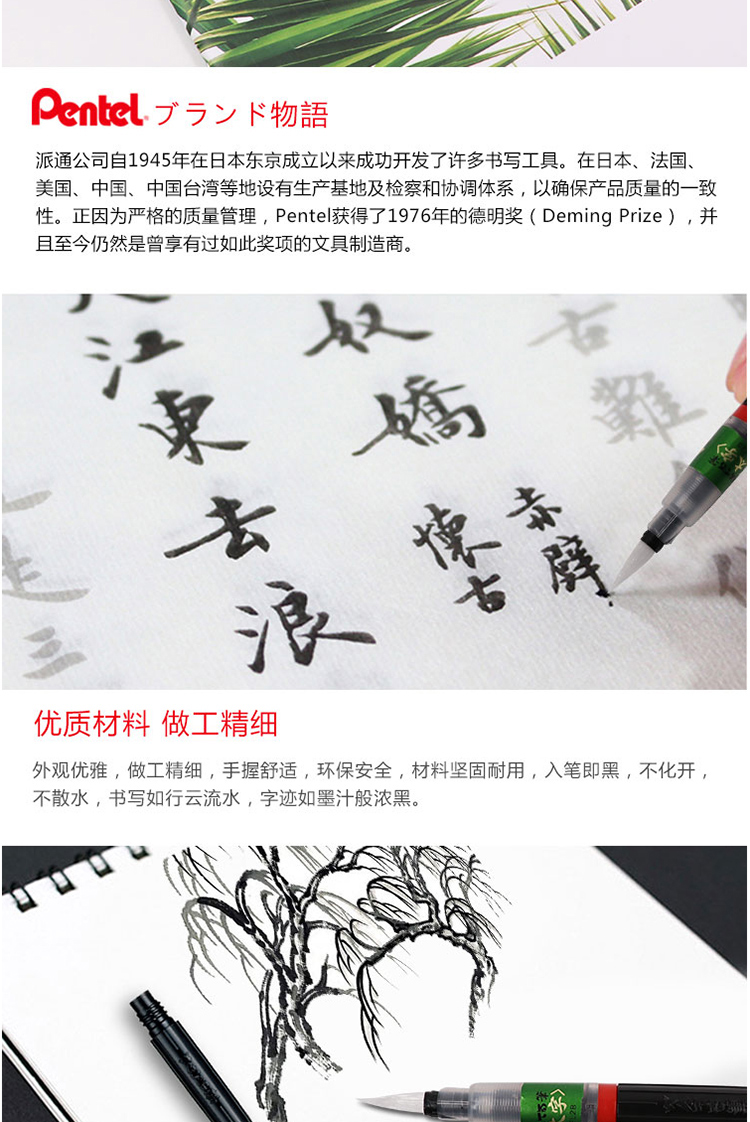 Pentel ブランド物語
派通公司自1945年在日本东京成立以来成功开发了许多书写工具。在日本、法国、
美国、中国、中国台湾等地设有生产基地及检察和协调体系，以确保产品质量的一致
性。正因为严格的质量管理，Pentel获得了1976年的德明奖（Deming Prize），并
且至今仍然是曾享有过如此奖项的文具制造商。
奴
嬌
赤
壁
懷
古
江
東
去
浪
古
難
三
优质材料 做工精细
外观优雅，做工精细，手握舒适，环保安全，材料坚固耐用，入笔即黑，不化开，
不散水，书写如行云流水，字迹如墨汁般浓黑。